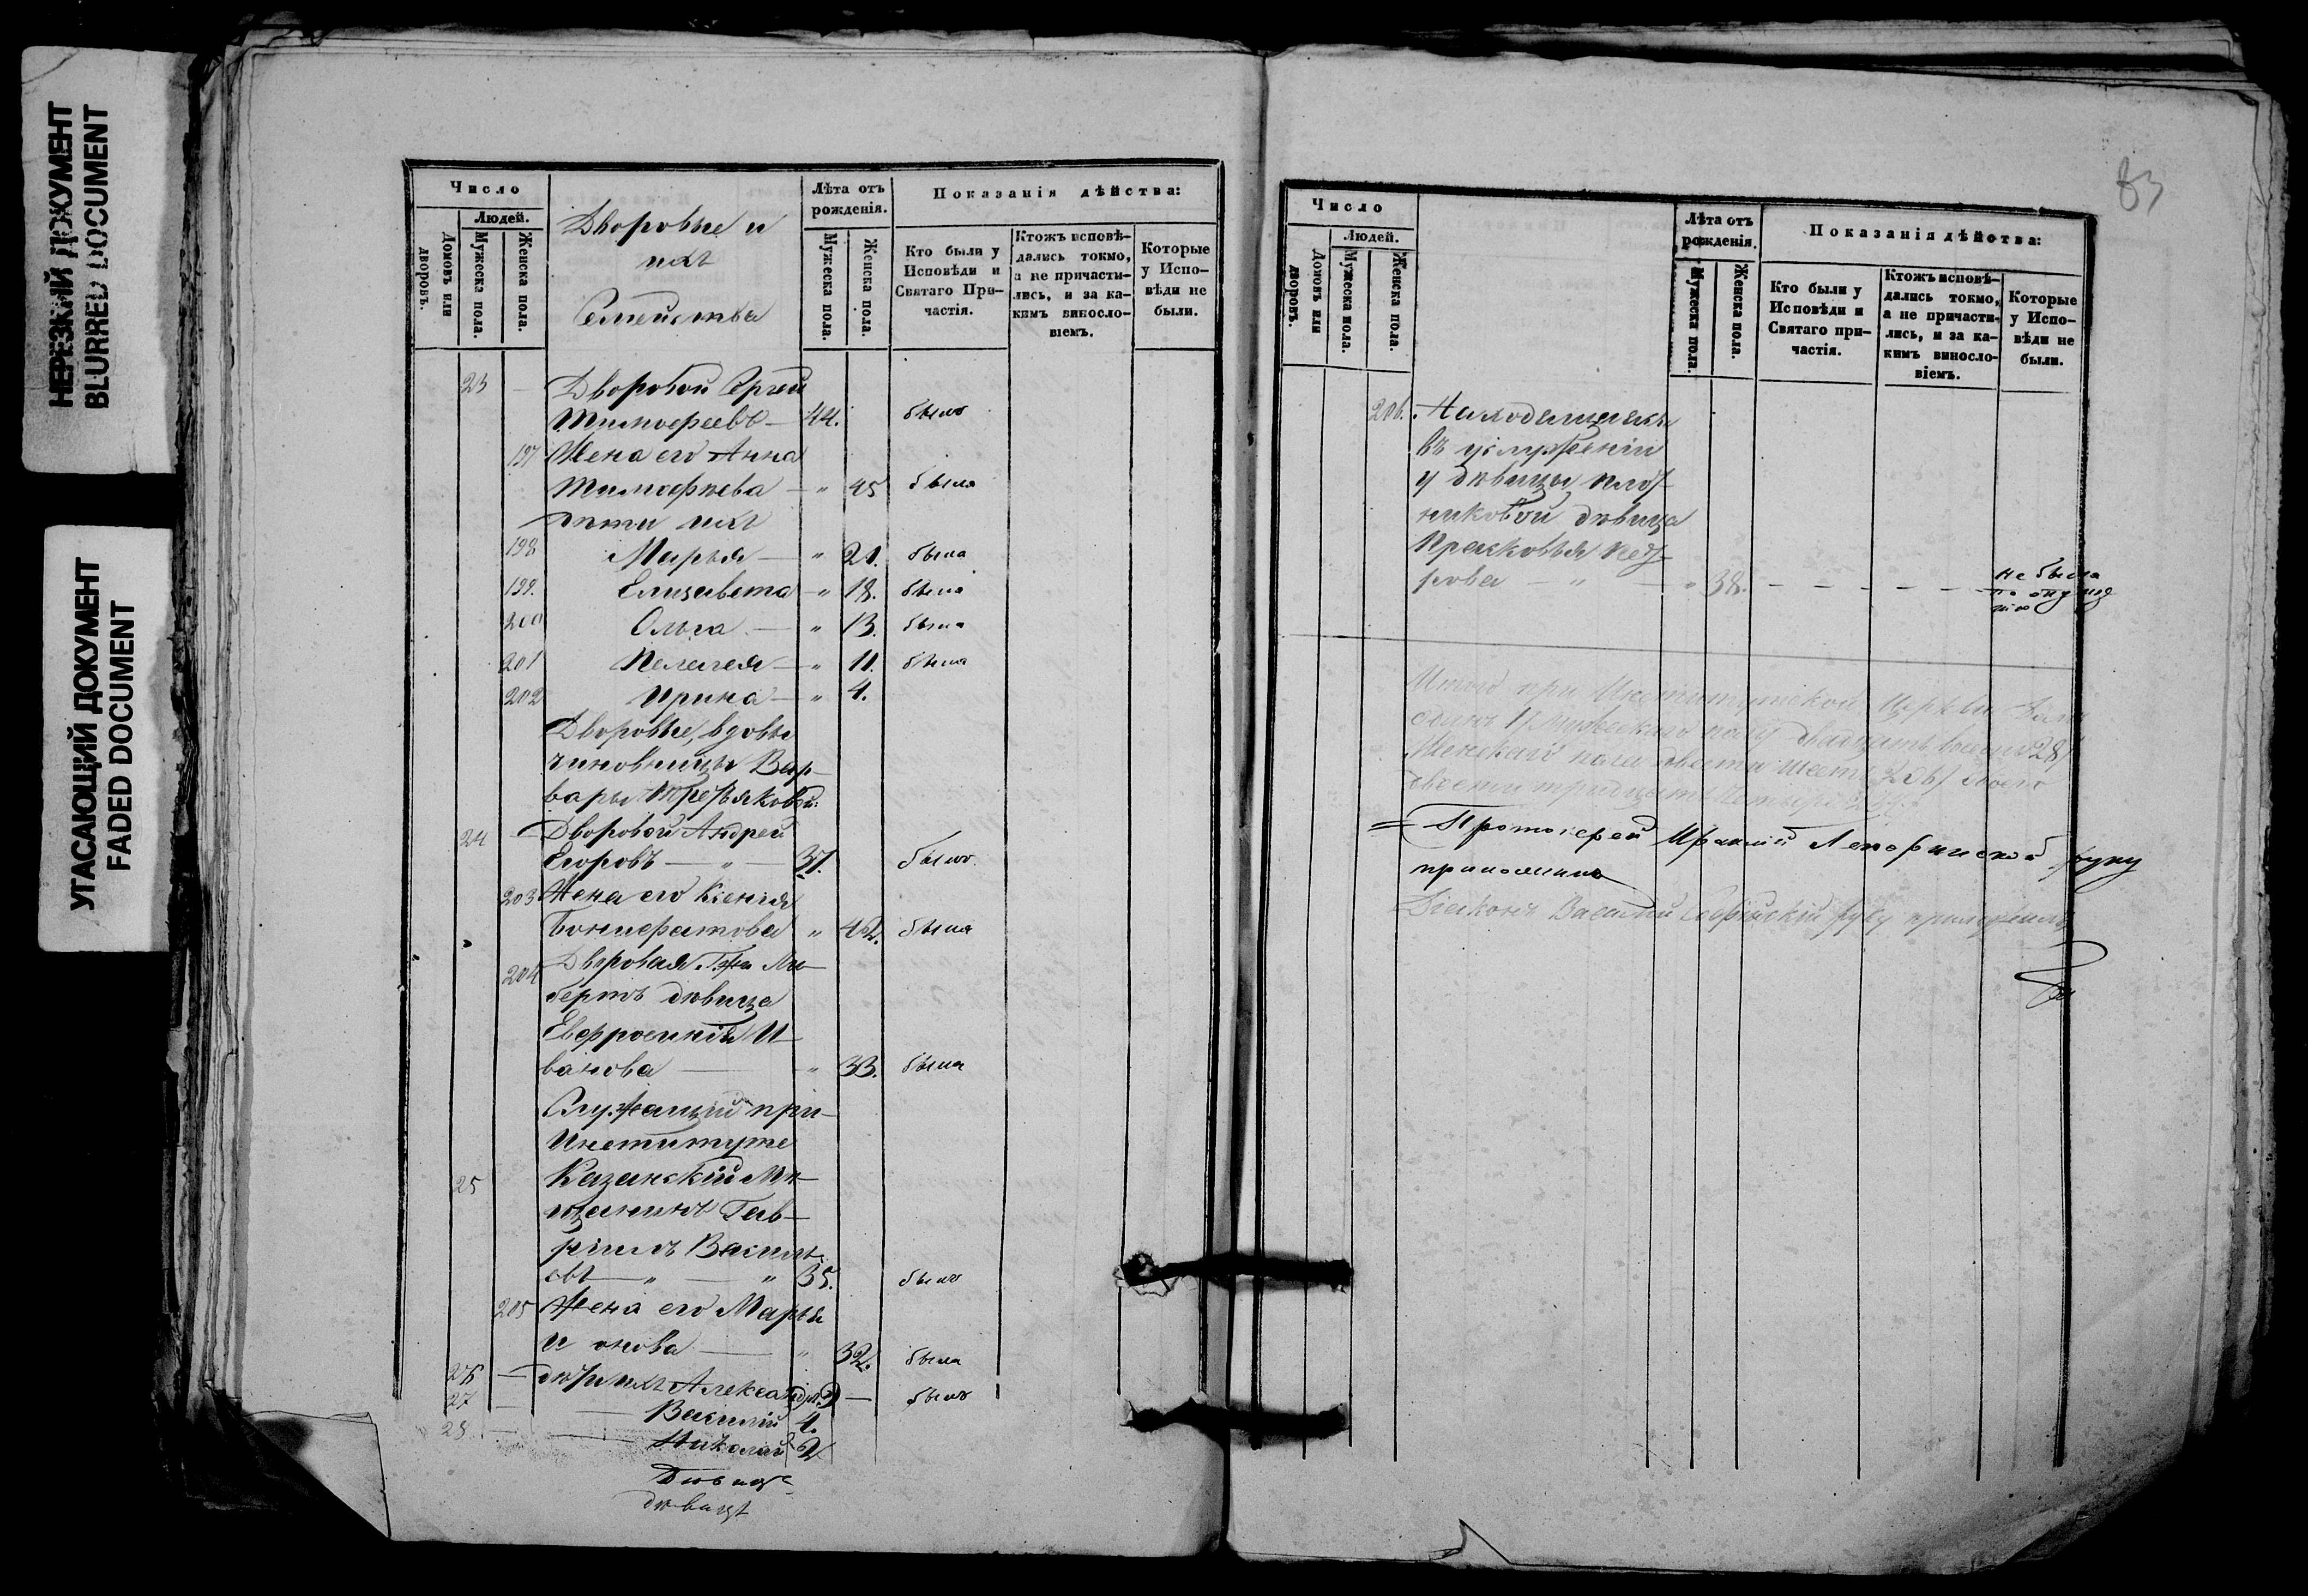 НЕРЕЗКИЙ ДОКУМЕНТ
BLURRED DOCUMENT
УГАСАЮЩИЙ ДОКУМЕНТ
FADED DOCUMENT
Число
Людей.
Домовъ или дворовъ.
Мужеска пола.
Женска пола.
Дворовые и
ихъ
Семейства
Лѣта отъ рожденія.
Мужеска пола.
Женска пола.
Показанія дѣйства:
Кто были у Исповѣди и Святаго При-
частія.
Ктожъ исповѣ-
дались токмо,
а не причасти-
лись, и за ка-
кимъ виносло-
віемъ.
Которые
у Испо-
вѣди не
были.
23 — Дворовой Сергей
Тимофеевъ — 44. былъ
197 Жена его Анна
Тимофѣева — „ 45 была
дѣти ихъ
198 Марья — „ 21. была
199. Елизавета — „ 18. была
200 Ольга — „ 13. была
201 Пелагея — „ 11. была
202 Ирина — „ 4.
Дворовые, вдовы
чиновницы Вар-
вары Третьяковой:
24 — Дворовой Андрей
Егоровъ — „ — 37. былъ.
203 Жена его Ксенія
„ 42. была
204 Дворовая Г-жи Ли-
бертъ дѣвица
Евфросинія И-
ванова — „ 33. была
Служащій при
Институтѣ
25 Казанскій Мѣ-
щанинъ Гав-
ріилъ Василь-
евъ — „ — „ 35. былъ
205 Жена его Марья
„ 32. была
26 — дѣти ихъ Александръ 9 — былъ
27 — Василій 4.
28 — Николай 2
Дѣвица
дѣвицы
83
Число
Людей.
Домовъ или дворовъ.
Мужеска пола.
Женска пола.
Лѣта отъ рожденія.
Мужеска пола.
Женска пола.
Показанія дѣйства:
Кто были у
Исповѣди и
Святаго при-
частія.
Ктожъ исповѣ-
дались токмо,
а не причасти-
лись, и за ка-
кимъ виносло-
віемъ.
Которые
у Испо-
вѣди не
были.
206. Находящаяся
въ услуженіи
у дѣвицы Плот-
никовой дѣвица
Прасковья Пет-
рова — „ — „ 38. — — — — — не была
по опущ
нію
Итого при Институтской Церкви
Мужескаго полу двадцать восемь 28/
Женскаго пола двести шесть 206/ Всего
двести тридцать четыре 234.
Протоіерей руку
приложилъ
Діаконъ Василій руку приложилъ